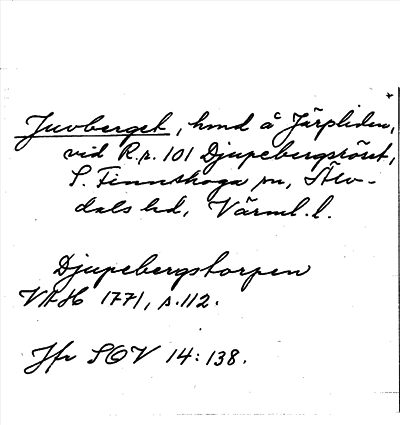 Juvberget, hmd å Järpliden,
vid R.r. 101 Djupebergsröset,
S. Finnskoga sn, Älv-
dals hd, Värml. l.
Djupebergstorpen
VFH 1771, s. 112.
Jfr SOV 14:138.